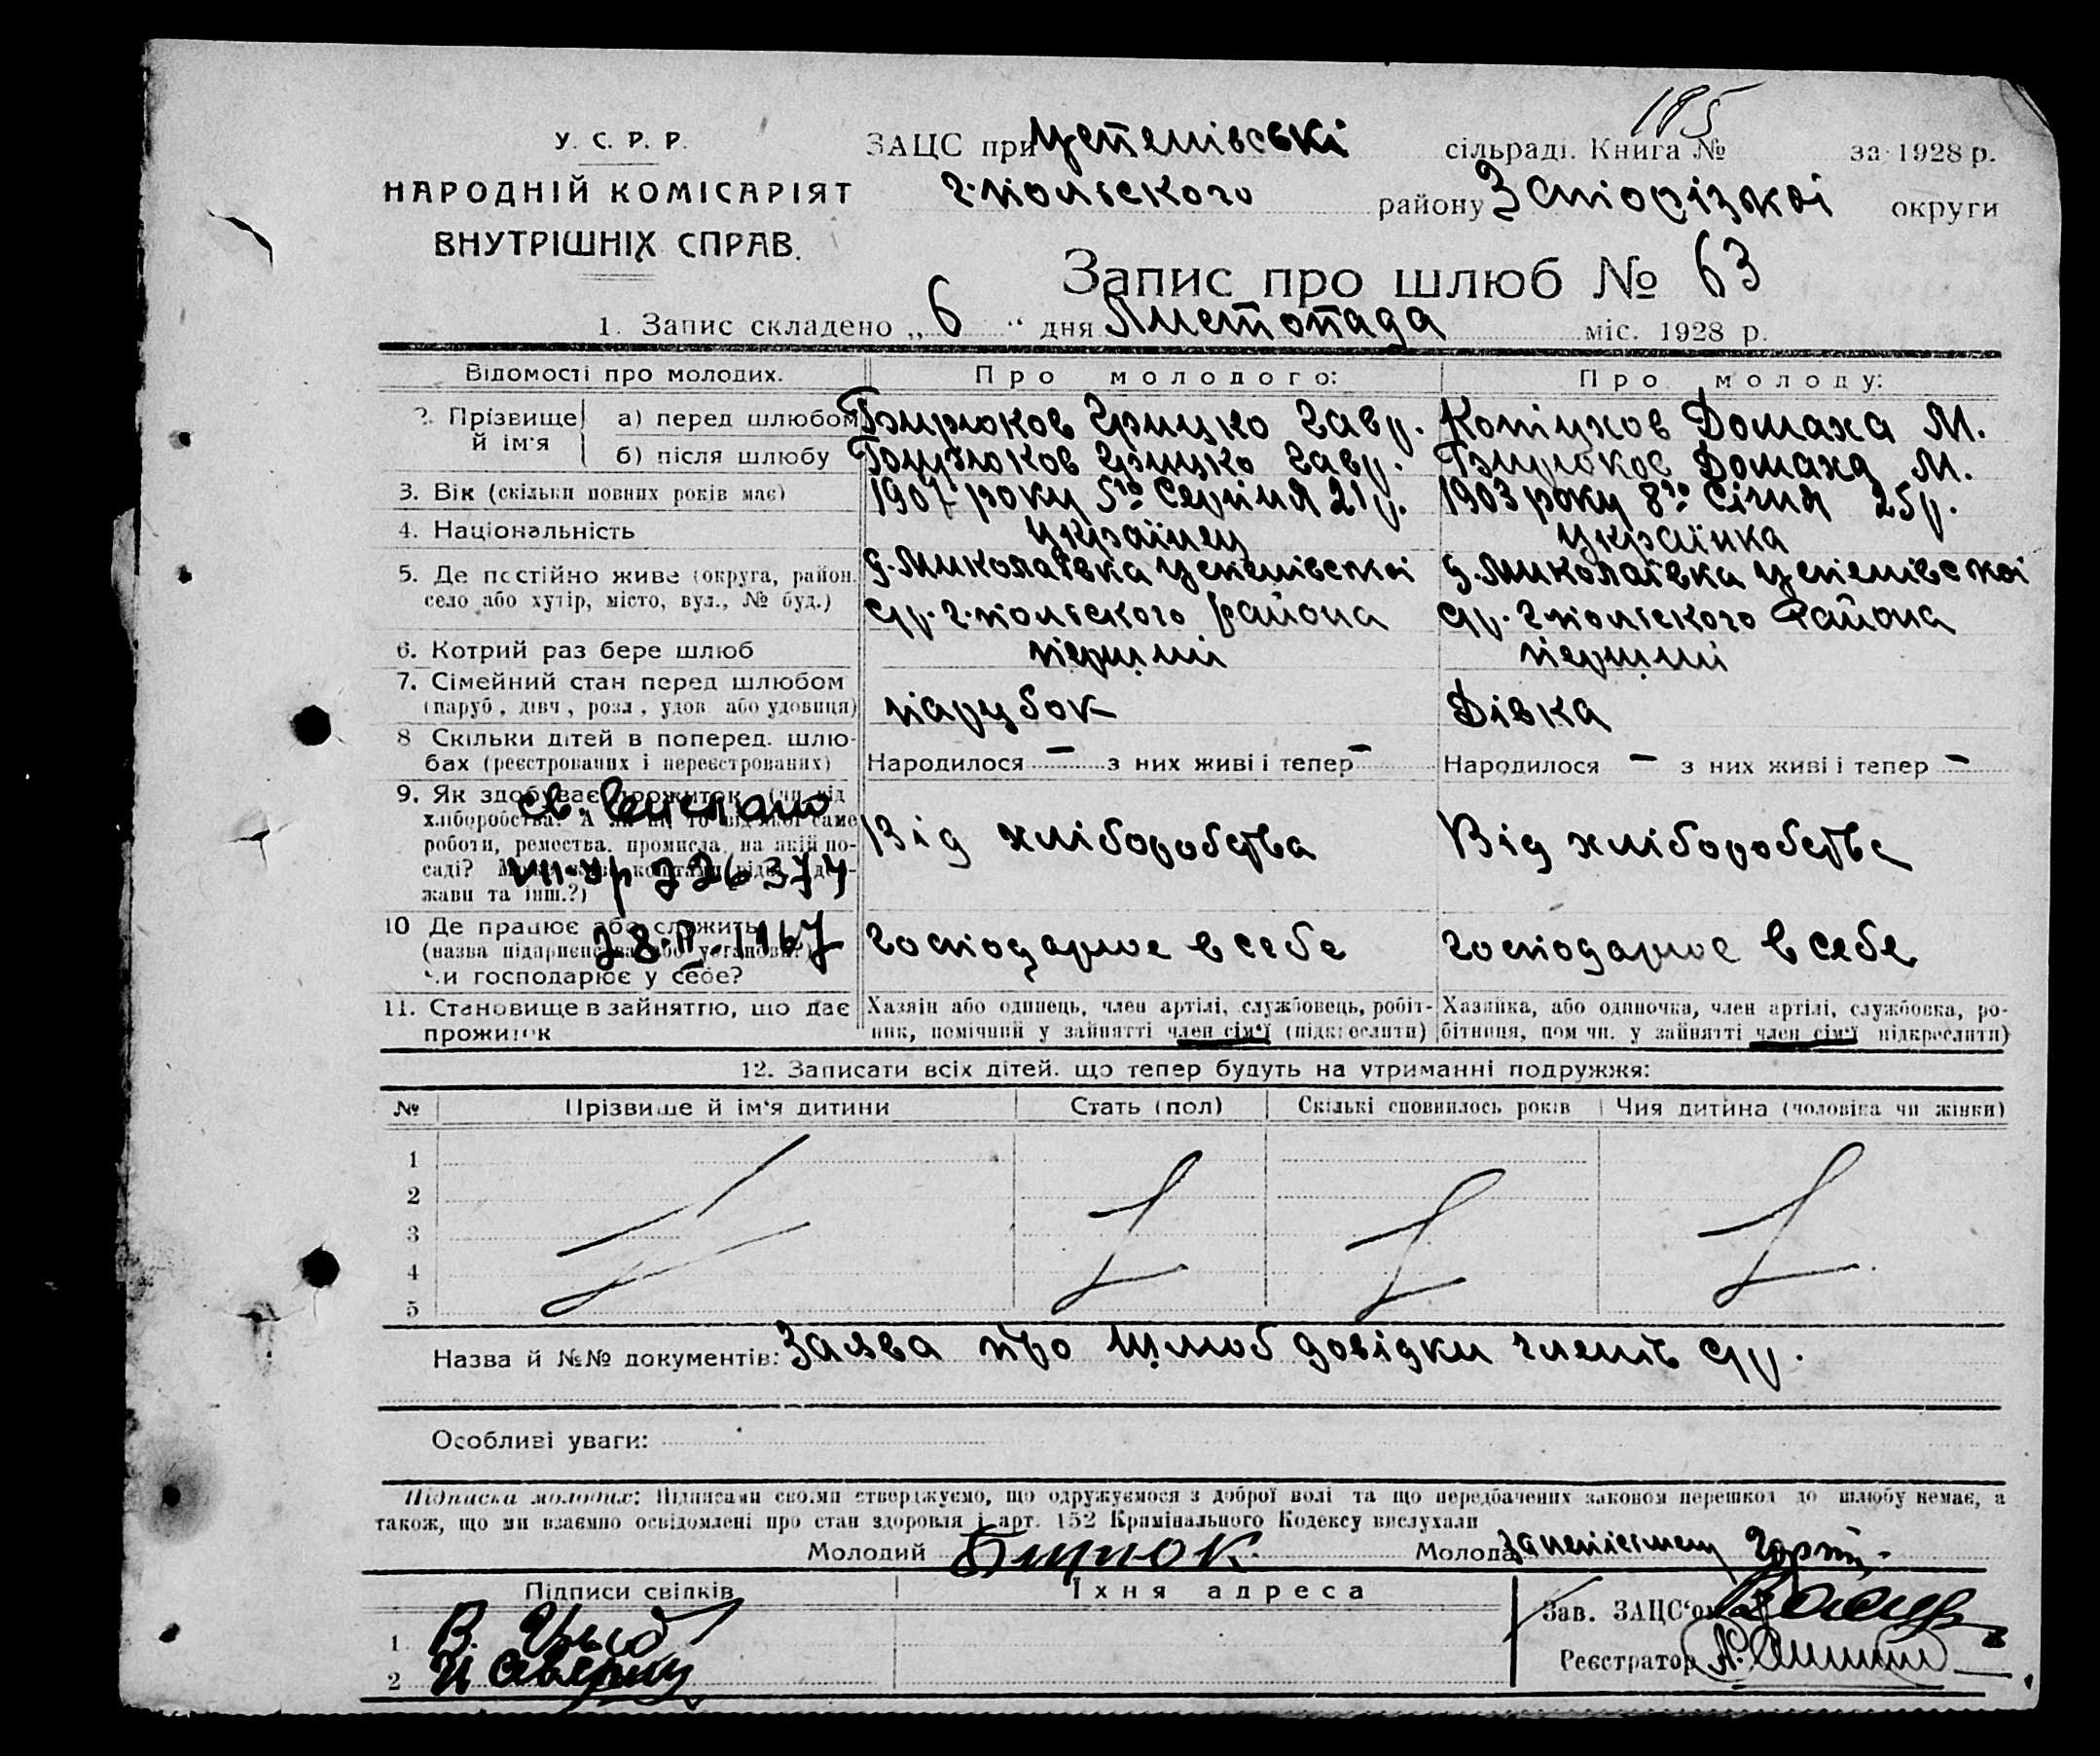 195
У. С. Р. Р.
ЗАЦС при Успенівські сільраді. Книга № за 1928 р.
НАРОДНІЙ КОМІСАРІЯТ
Г.Польского району Запорізкої округи
ВНУТРІШНІХ СПРАВ.
Запис про шлюб № 63
1. Запис складено „ 6 “ дня Листопада міс. 1928 р.
Відомості про молодих. Про молодого: Про молоду:
2. Прізвище й ім'я
а) перед шлюбом Бирюков Грицко Гавр. Копіцков Домаха М.
б) після шлюбу Бирюков Грицко Гавр. Бирюков Домаха М.
3. Вік (скільки повних років має) 1907 року 5го Серпня 21р. 1903 року 8го Січня 25р.
4. Національність українец українка
5. Де постійно живе (округа, район, село або хутір, місто, вул., № буд.)
с. Миколаївка Успенівської с. Миколаївка Успенівської
ср. Г.Польского району ср. Г.Польского Района
6. Котрий раз бере шлюб перший перший
7. Сімейний стан перед шлюбом
(паруб., дівч., розл., удов. або удовиця) парубок Дівка
8 Скільки дітей в поперед. шлюбах (реєстрованих і нереєстрованих)
Народилося — з них живі і тепер — Народилося — з них живі і тепер —
9. Як здобуває прожиток
роботи, ремества, промисла, на якій посаді?
жави та інш.?)
Від хліборобства Від хліборобства
10 Де працює або служить
(назва підприємства або установи?)
чи господарює у себе?
господарює в себе господарює в себе
11. Становище в зайняттю, що дає прожиток
Хазяїн або одинець, член артілі, службовець, робітник, помічний у зайнятті член сім'ї (підкреслити)
Хазяйка, або одиночка, член артілі, службовка, робітниця, помічн. у зайнятті член сім'ї підкреслити)
12. Записати всіх дітей, що тепер будуть на утриманні подружжя:
№ Прізвище й ім'я дитини Стать (пол) Скількі сповнилось років Чия дитина (чоловіка чи жінки)
1
2
3
4
5
Назва й №№ документів: Заява про Шлюб довідки членів ср.
Особливі уваги:
Підписка молодих: Підписами своїми стверджуємо, що одружуємося з доброї волі та що передбачених законом перешкод до шлюбу немає, а
також, що ми взаємно освідомлені про стан здоровля і арт. 152 Кримінального Кодексу вислухали
Молодий Бирюк Молода
Підписи свідків Їхня адреса
Зав. ЗАЦС'ом
1
Реєстратор
2